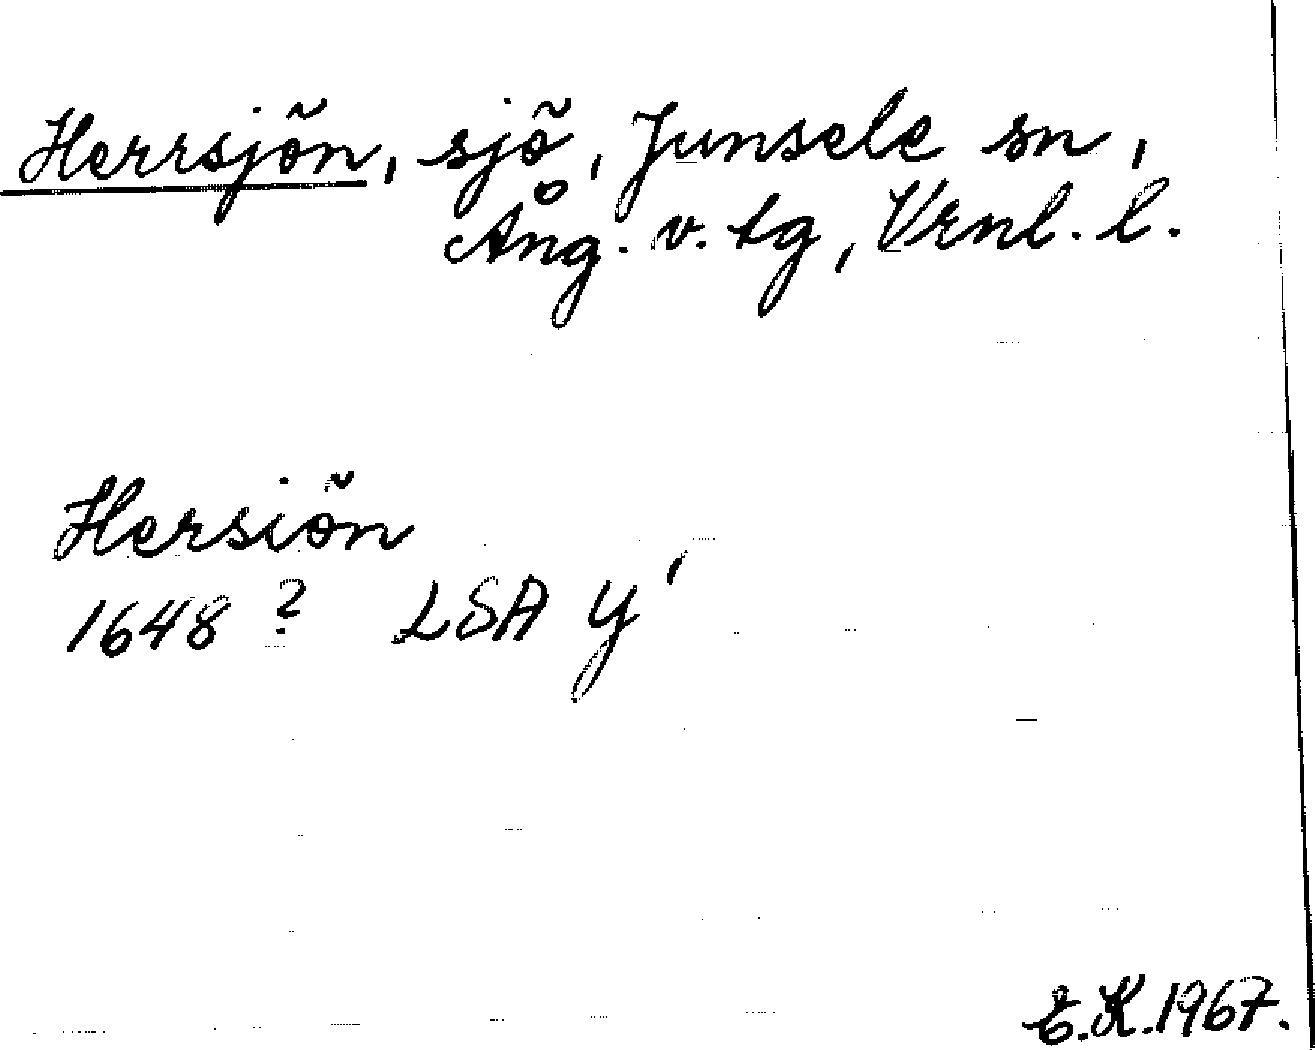 Herrsjön, sjö, Junsele sn,
Ång. v. tg, Vrnl. l.
Hersiön
1648? LSA Y'
E.K.1967.